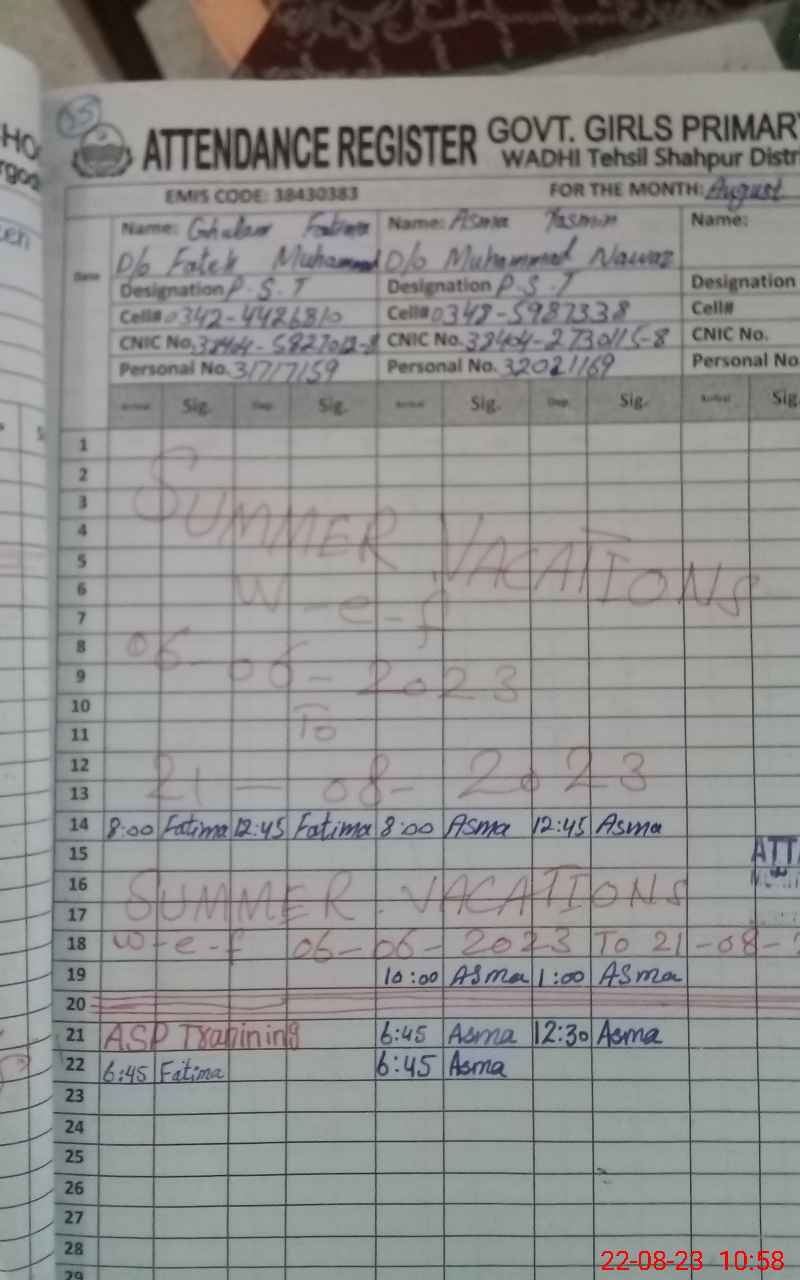 03
ATTENDANCE REGISTER GOVT. GIRLS PRIMARY
WADHI Tehsil Shahpur Distri
EMIS CODE: 38430383 FOR THE MONTH: August
Name: Ghulam Fatima Name: Asma Yasmin Name:
D/o Fateh Muhammad D/o Muhammad Nawaz
Date
Designation P.S.T Designation P.S.T Designation
Cell# 0342-4426810 Cell# 0348-5987338 Cell#
CNIC No. CNIC No. 38404-2730115-8 CNIC No.
Personal No. 31717159 Personal No. 32021169 Personal No.
Arrival Sig. Dep. Sig. Arrival Sig. Dep. Sig. Arrival Sig.
1
2
3
SUMMER VACATIONS
4
5
6
W-e-f
7
8
06-06-2023
9
10
To
11
12
21-08-2023
13
14 8:00 Fatima 12:45 Fatima 8:00 Asma 12:45 Asma
15 ATT
16
SUMMER VACATIONS
17
18 w-e-f 06-06-2023 To 21-08-
19 10:00 Asma 1:00 Asma
20
21 ASP Tranining 6:45 Asma 12:30 Asma
22 6:45 Fatima 6:45 Asma
23
24
25
26
27
28
29
22-08-23 10:58